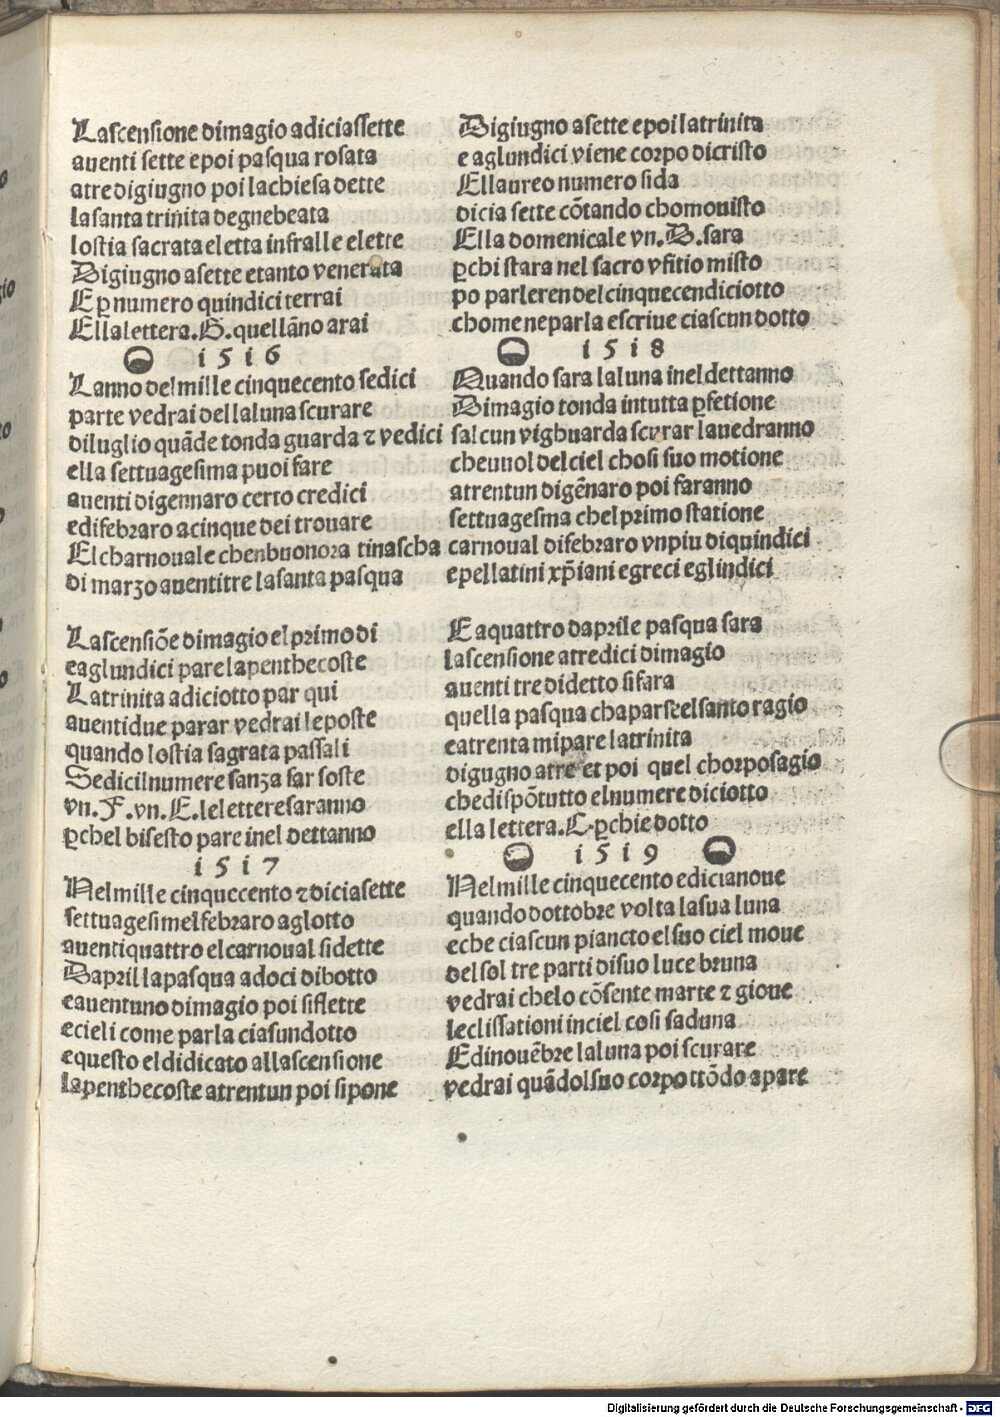 Lascensione dimagio adiciassette
auenti sette epoi pasqua rosata
atre digiugno poi lachiesa dette
lasanta trinita degnebeata
lostia sacrata eletta infralle elette
Digiugno asette etanto venerata
Eꝑ numero quindici terrai
Ellalettera .G. quellãno arai
1516
Lanno del mille cinquecento sedici
parte vedrai dellaluna scurare
diluglio quãde tonda guarda ⁊ vedici
ella settuagesima puoi fare
auenti digennaro certo credici
edifebraro acinque dei trouare
Elcharnouale chenbuonora tinascha
di marzo auentitre lasanta pasqua
Lascensiõe dimagio el primo di
eaglundici pare lapenthecoste
Latrinita adiciotto par qui
auentidue parar vedrai leposte
quando lostia sagrata passali
Sedicilnumere sanza far soste
vn .F. vn .E. le lettere saranno
ꝑchel bisesto pare inel dettanno
1517
Nelmille cinquecento ⁊ diciasette
settuagesimelfebraro aglotto
auentiquattro elcarnoual sidette
Dapril lapasqua adoci dibotto
eauentuno dimagio poi siflette
ecieli come parla ciasundotto
equesto eldidicato allascensione
lapenthecoste atrentun poi sipone
Digiugno asette epoi latrinita
eaglundici viene corpo dicristo
Ellaureo numero sida
dicia sette cõtando chomouisto
Ella domenicale vn .D. sara
ꝑchi stara nel sacro vfitio misto
po parleren delcinquecendiciotto
chome neparla escriue ciascun dotto
1518
Quando sara laluna inel dettanno
Dimagio tonda intutta ꝑfetione
salcun vighuarda scurar lauedranno
cheuuol delciel chosi suo motione
atrentun digẽnaro poi faranno
settuagesma chel primo statione
carnoual difebraro vnpiu diquindici
epellatini xp̃iani egreci eglindici
Eaquattro daprile pasqua sara
lascensione atredici dimagio
auenti tre didetto sifara
quella pasqua chaparseelsanto ragio
eatrenta mipare latrinita
digugno atre et poi quel chorposagio
chedispõtutto elnumere diciotto
ella lettera .C. ꝑchie dotto
1519
Nelmille cinquecento edicianoue
quando dottobre volta lasua luna
eche ciascun piancto elsuo ciel moue
delsol tre parti disuo luce bruna
vedrai chelo cõsente marte ⁊ gioue
leclissationi inciel cosi saduna
Edinouẽbre laluna poi scurare
vedrai quãdolsuo corpo ttõdo apare
Digitalisierung gefördert durch die Deutsche Forschungsgemeinschaft - DFG